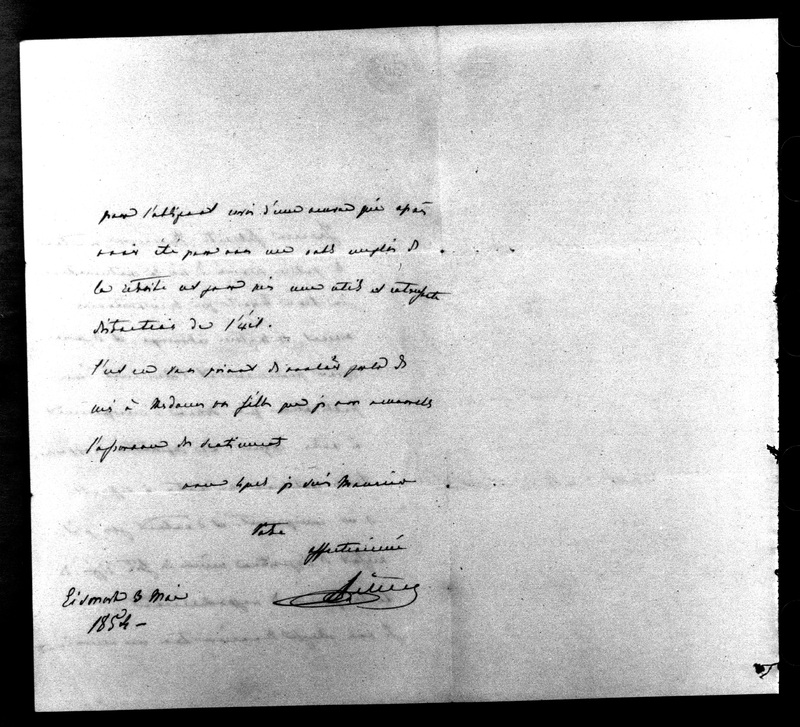 pour l'obligeant envoi d'une œuvre qui après
avoir été pour vous une noble emploi de
la retraite est pour moi une utile et
distraction de l'exil.
C'est en vous priant de vouloir parler de
moi à Mesdames vos filles que je vous renouvelle
l'assurance des sentiments
avec lesquels je suis Monsieur
Votre
affectionné
3 Mai
1854 -